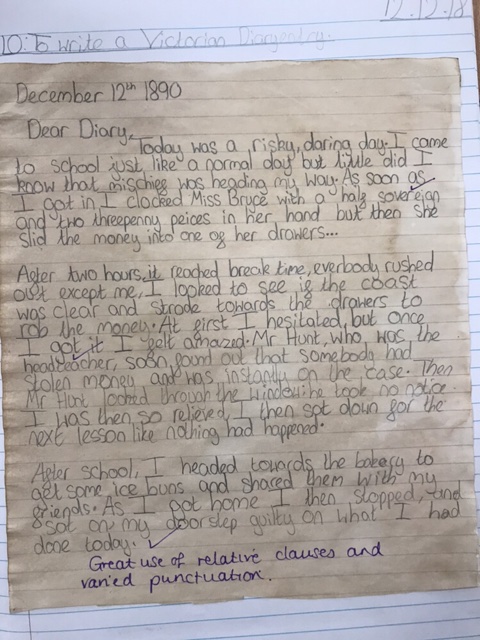 12.12.18
LO: To write a Victorian Diary entry.
December 12th 1890
Dear Diary,
Today was a risky, daring day. I came
to school just like a normal day but little did I
know that mischief was heading my way. As soon as
I got in, I clocked Miss Bryce with a half sovereign
and two threepenny peices in her hand but then she
slid the money into one of her drawers...
After two hours, it reached break time, everbody rushed
out except me, I looked to see if the coast
was clear and strode towards the drawers to
rob the money. At first I hesitated, but once
I got it I felt amazed. Mr Hunt, who was the
headteacher, soon found out that somebody had
stolen money and was instantly on the case. Then
Mr Hunt looked through the window: he took no notice.
I was then so relieved, I then sat down for the
next lesson like nothing had happened.
After school, I headed towards the bakery to
get some ice buns and shared them with my
friends. As I got home I then stopped, and
sat on my doorstep guilty on what I had
done today.
Great use of relative clauses and
varied punctuation.